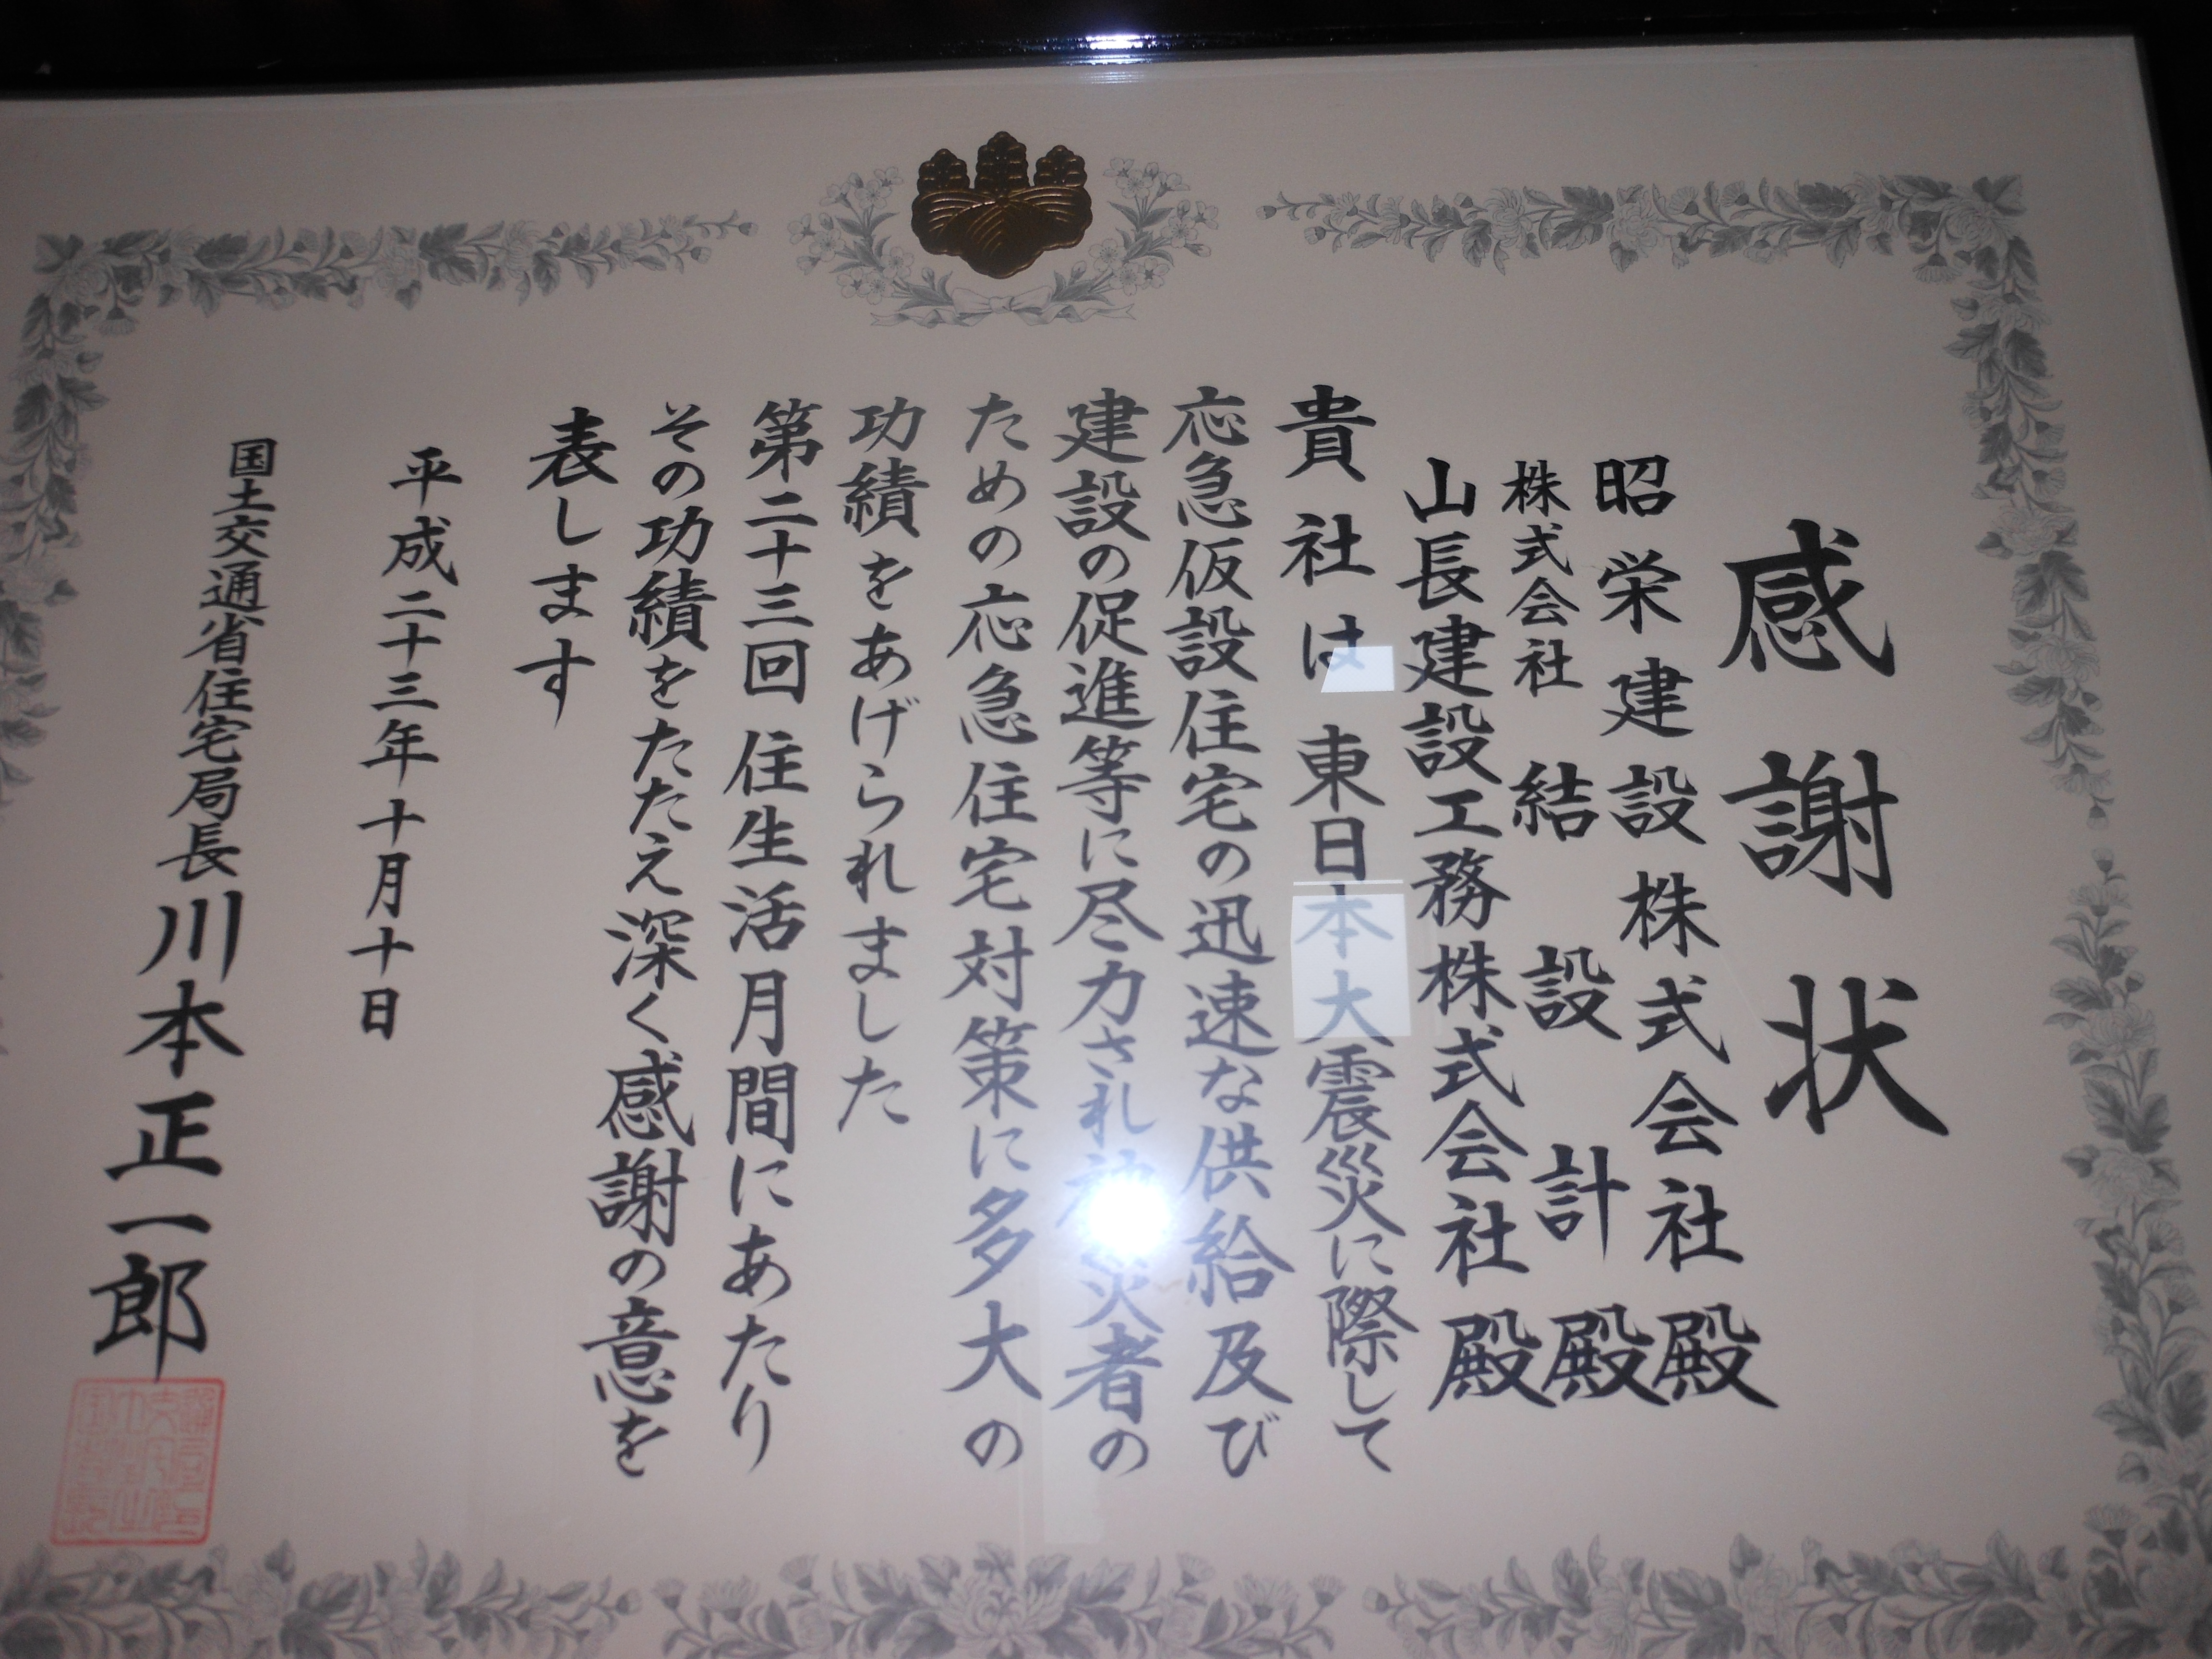 感謝状
昭栄建設株式会社殿
株式会社結設計殿
山長建設工務株式会社殿
貴社は東日本大震災に際して
応急仮設住宅の迅速な供給及び
建設の促進等に尽力され被災者の
ための応急住宅対策に多大の
功績をあげられました
第二十三回住生活月間にあたり
その功績をたたえ深く感謝の意を
表します
平成二十三年十月十日
国土交通省住宅局長川本正一郎